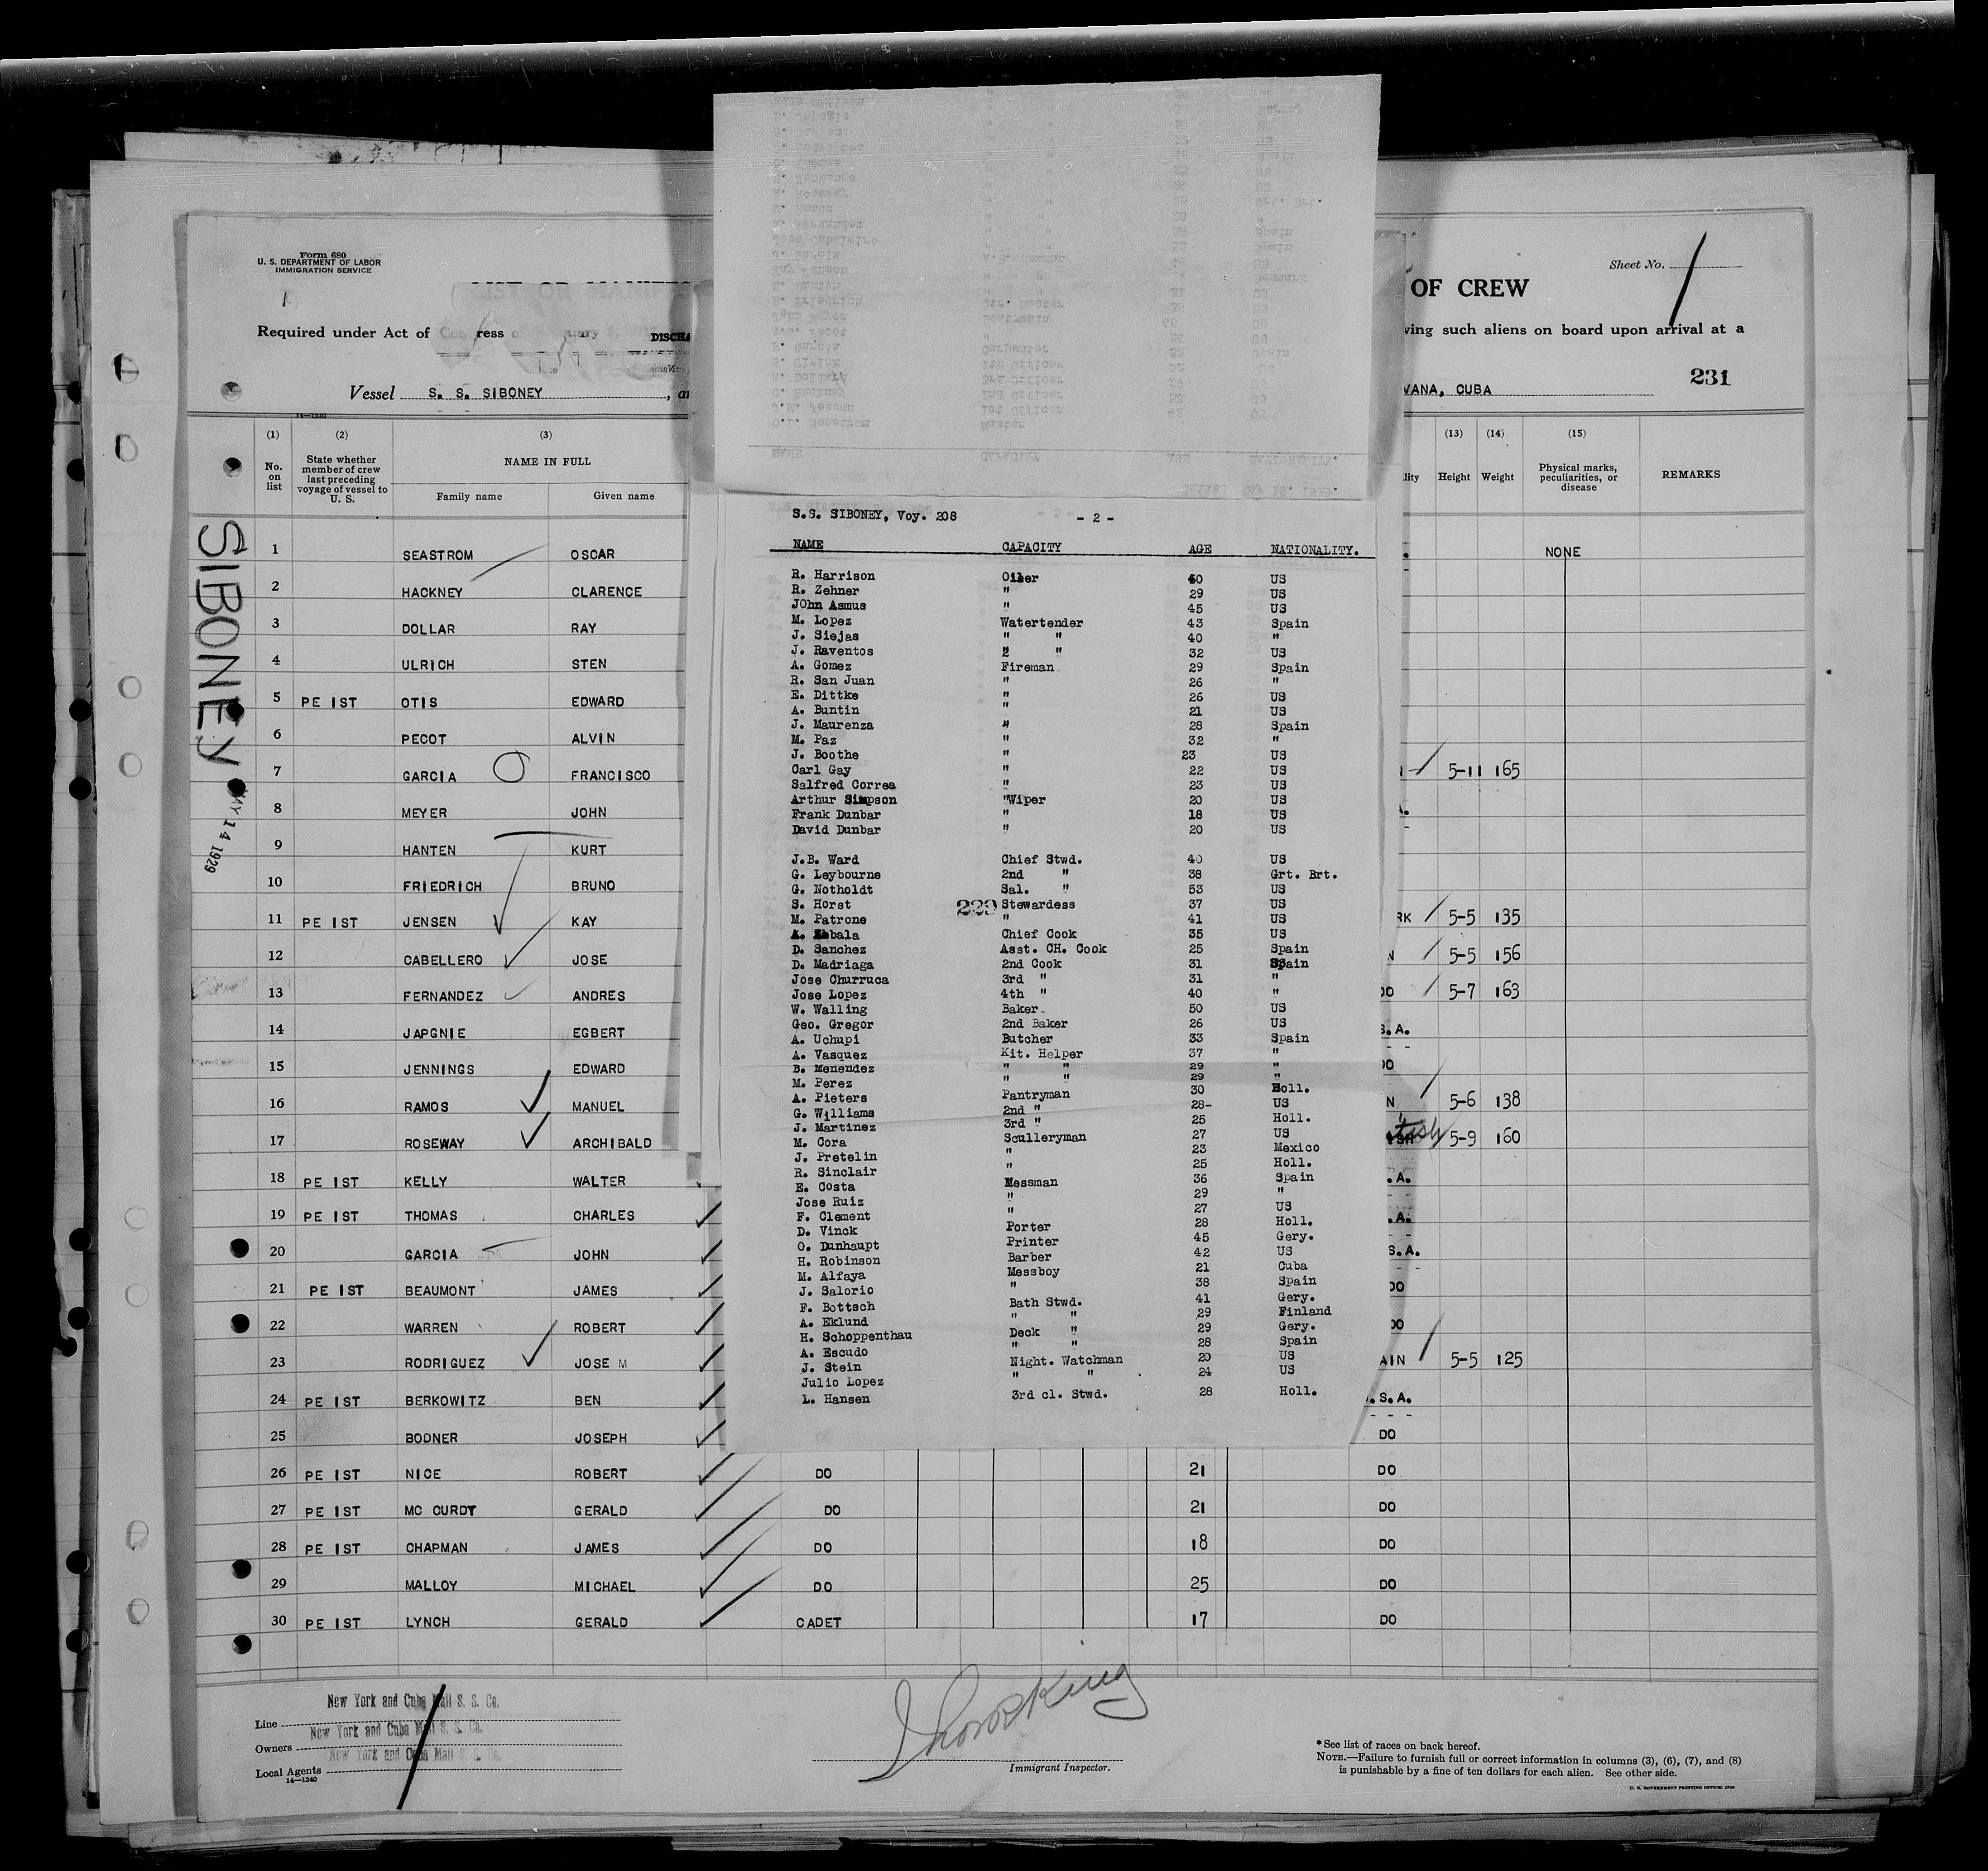 Form 680
U. S. DEPARTMENT OF LABOR
IMMIGRATION SERVICE
LIST OR MANIF
OF CREW
Sheet No. 1
Required under Act of Congress
DISCHA
ving such aliens on board upon arrival at a
Vessel S. S. SIBONEY, a
VANA, CUBA
231
(1) (2) (3) (13) (14) (15)
No. on list
State whether member of crew last preceding voyage of vessel to U. S.
NAME IN FULL
Family name Given name
lity Height Weight
Physical marks, peculiarities, or disease
REMARKS
SIBONEY
MAY 14 1929
1 SEASTROM OSCAR NONE
2 HACKNEY CLARENCE
3 DOLLAR RAY
4 ULRICH STEN
5 PE IST OTIS EDWARD
6 PECOT ALVIN
7 GARCIA FRANCISCO 5-11 165
8 MEYER JOHN
9 HANTEN KURT
10 FRIEDRICH BRUNO
11 PE IST JENSEN KAY RK 5-5 135
12 CABELLERO JOSE N 5-5 156
13 FERNANDEZ ANDRES DO 5-7 163
14 JAPGNIE EGBERT S.A.
15 JENNINGS EDWARD DO
16 RAMOS MANUEL N 5-6 138
17 ROSEWAY ARCHIBALD 5-9 160
18 PE IST KELLY WALTER .A.
19 PE IST THOMAS CHARLES .A.
20 GARCIA JOHN S.A.
21 PE IST BEAUMONT JAMES DO
22 WARREN ROBERT DO
23 RODRIGUEZ JOSE M AIN 5-5 125
24 PE IST BERKOWITZ BEN .S.A.
25 BODNER JOSEPH DO
26 PE IST NICE ROBERT DO 21 DO
27 PE IST MC CURDY GERALD DO 21 DO
28 PE IST CHAPMAN JAMES DO 18 DO
29 MALLOY MICHAEL DO 25 DO
30 PE IST LYNCH GERALD CADET 17 DO
S.S. SIBONEY, Voy. 208 - 2 -
NAME CAPACITY AGE NATIONALITY.
R. Harrison Oiler 40 US
R. Zehner " 29 US
JOhn Asmus " 45 US
M. Lopez Watertender 43 Spain
J. Siejas " " 40 "
J. Raventos " " 32 US
A. Gomez Fireman 29 Spain
R. San Juan " 26 "
E. Dittke " 26 US
A. Buntin " 21 US
J. Maurenza " 28 Spain
M. Paz " 32 "
J. Boothe " 23 US
Carl Gay " 22 US
Salfred Correa " 23 US
Arthur Simpson "Wiper 20 US
Frank Dunbar " 18 US
David Dunbar " 20 US
J.B. Ward Chief Stwd. 40 US
G. Leybourne 2nd " 38 Grt. Brt.
G. Notholdt Sal. " 53 US
S. Horst Stewardess 37 US
229
M. Patrone " 41 US
A. Zabala Chief Cook 35 US
D. Sanchez Asst. CH. Cook 25 Spain
D. Madriaga 2nd Cook 31 Spain
Jose Churruca 3rd " 31 "
Jose Lopez 4th " 40 "
W. Walling Baker 50 US
Geo. Gregor 2nd Baker 26 US
A. Uchupi Butcher 33 Spain
A. Vasquez Kit. Helper 37 "
B. Menendez " " 29 "
M. Perez " " 29 "
A. Pieters Pantryman 30 Holl.
G. Williams 2nd " 28- US
J. Martinez 3rd " 25 Holl.
M. Cora Sculleryman 27 US
J. Pretelin " 23 Mexico
R. Sinclair " 25 Holl.
E. Costa Messman 36 Spain
Jose Ruiz " 29 "
F. Clement " 27 US
D. Vinck Porter 28 Holl.
O. Dunhaupt Printer 45 Gery.
H. Robinson Barber 42 US
M. Alfaya Messboy 21 Cuba
J. Salorio " 38 Spain
F. Bottsch Bath Stwd. 41 Gery.
A. Eklund " " 29 Finland
H. Schoppenthau Deck " 29 Gery.
A. Escudo " " 28 Spain
J. Stein Night. Watchman 20 US
Julio Lopez " " 24 US
L. Hansen 3rd cl. Stwd. 28 Holl.
New York and Cuba Mail S. S. Co.
Line
New York and Cuba Mail S. S. Co.
Owners
New York and Cuba Mail S. S. Co.
Local Agents
14—1240
Immigrant Inspector.
*See list of races on back hereof.
NOTE.—Failure to furnish full or correct information in columns (3), (6), (7), and (8)
is punishable by a fine of ten dollars for each alien. See other side.
U. S. GOVERNMENT PRINTING OFFICE: 1928